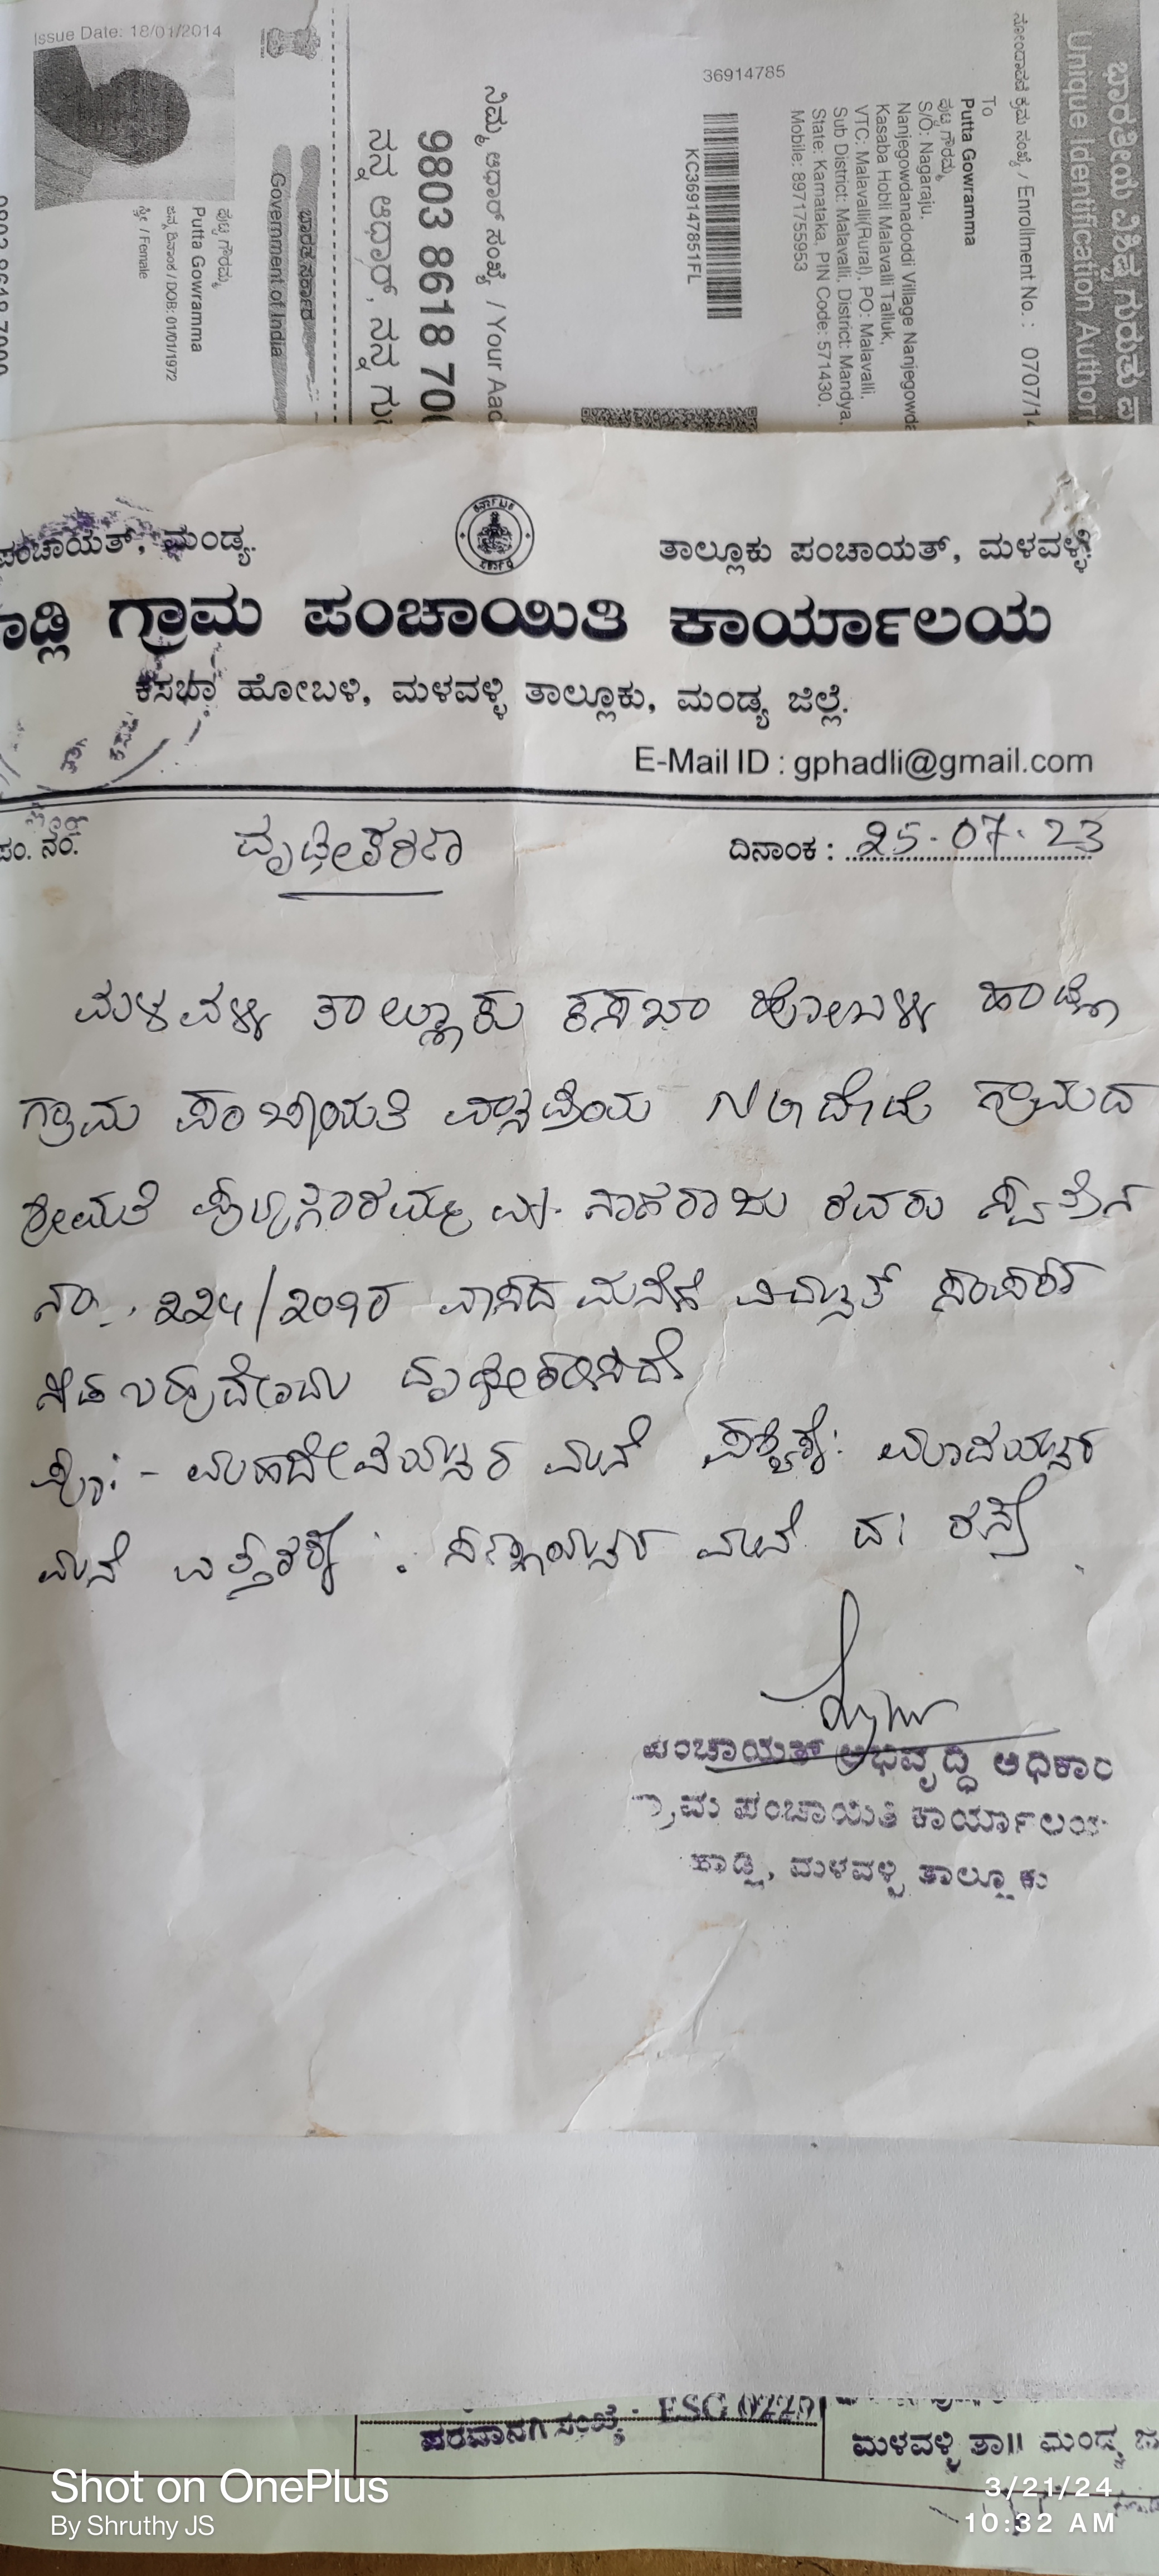 Issue Date: 18/01/2014
ಪುಟ್ಟ ಗೌರಮ್ಮ
Putta Gowramma
ಜನ್ಮ ದಿನಾಂಕ / DOB: 01/01/1972
ಸ್ತ್ರೀ / Female
ಭಾರತ ಸರ್ಕಾರ
Government of India
ನಿಮ್ಮ ಆಧಾರ್ ಸಂಖ್ಯೆ / Your Aad
9803 8618 700
ನನ್ನ ಆಧಾರ್, ನನ್ನ ಗು
36914785
KC369147851FL
ನೋಂದಾವಣೆ ಕ್ರಮ ಸಂಖ್ಯೆ / Enrollment No. : 0707/14
To
Putta Gowramma
ಪುಟ್ಟ ಗೌರಮ್ಮ
S/O: Nagaraju,
Nanjegowdanadoddi Village Nanjegowda
Kasaba Hobli Malavalli Talluk,
VTC: Malavalli(Rural), PO: Malavalli,
Sub District: Malavalli, District: Mandya,
State: Karnataka, PIN Code: 571430,
Mobile: 8971755953
ಭಾರತೀಯ ವಿಶಿಷ್ಟ ಗುರುತು ಪ್ರಾ
Unique Identification Authori
ಪಂಚಾಯತ್, ಮಂಡ್ಯ.
ತಾಲ್ಲೂಕು ಪಂಚಾಯತ್, ಮಳವಳ್ಳಿ
ಹಾಡ್ಲಿ ಗ್ರಾಮ ಪಂಚಾಯಿತಿ ಕಾರ್ಯಾಲಯ
ಕಸಬಾ ಹೋಬಳಿ, ಮಳವಳ್ಳಿ ತಾಲ್ಲೂಕು, ಮಂಡ್ಯ ಜಿಲ್ಲೆ.
E-Mail ID : gphadli@gmail.com
ಪಂ. ನಂ. ದೃಢೀಕರಣ ದಿನಾಂಕ : 25.07.23
ಮಳವಳ್ಳಿ ತಾಲ್ಲೂಕು ಕಸಬಾ ಹೋಬಳಿ ಹಾಡ್ಲಿ
ಗ್ರಾಮ ಪಂಚಾಯತಿ ವ್ಯಾಪ್ತಿಯ ಗ್ರಾಮದ
ಶ್ರೀಮತಿ ಪುಟ್ಟಗೌರಮ್ಮ ನಾಗರಾಜು ರವರು
ನಂ. 224/ ವಾಸದ ಮನೆಗೆ ವಿದ್ಯುತ್ ಸಂಪರ್ಕ
ದೃಢೀಕರಿಸಿದೆ
ಪೂ:- ಮಹದೇವಯ್ಯನವರ ಮನೆ ಪಶ್ಚಿಮಕ್ಕೆ: ಮಾದಯ್ಯನವರ
ಮನೆ ಉತ್ತರಕ್ಕೆ : ಮನೆ ದ: ರಸ್ತೆ
ಪಂಚಾಯತ್ ಅಭಿವೃದ್ಧಿ ಅಧಿಕಾರಿ
ಗ್ರಾಮ ಪಂಚಾಯಿತಿ ಕಾರ್ಯಾಲಯ
ಹಾಡ್ಲಿ, ಮಳವಳ್ಳಿ ತಾಲ್ಲೂಕು
ಪರವಾನಗಿ ಸಂಖ್ಯೆ - ESG 0226
ಮಳವಳ್ಳಿ ತಾ|| ಮಂಡ್ಯ ಜಿ
Shot on OnePlus
By Shruthy JS
3/21/24
10:32 AM